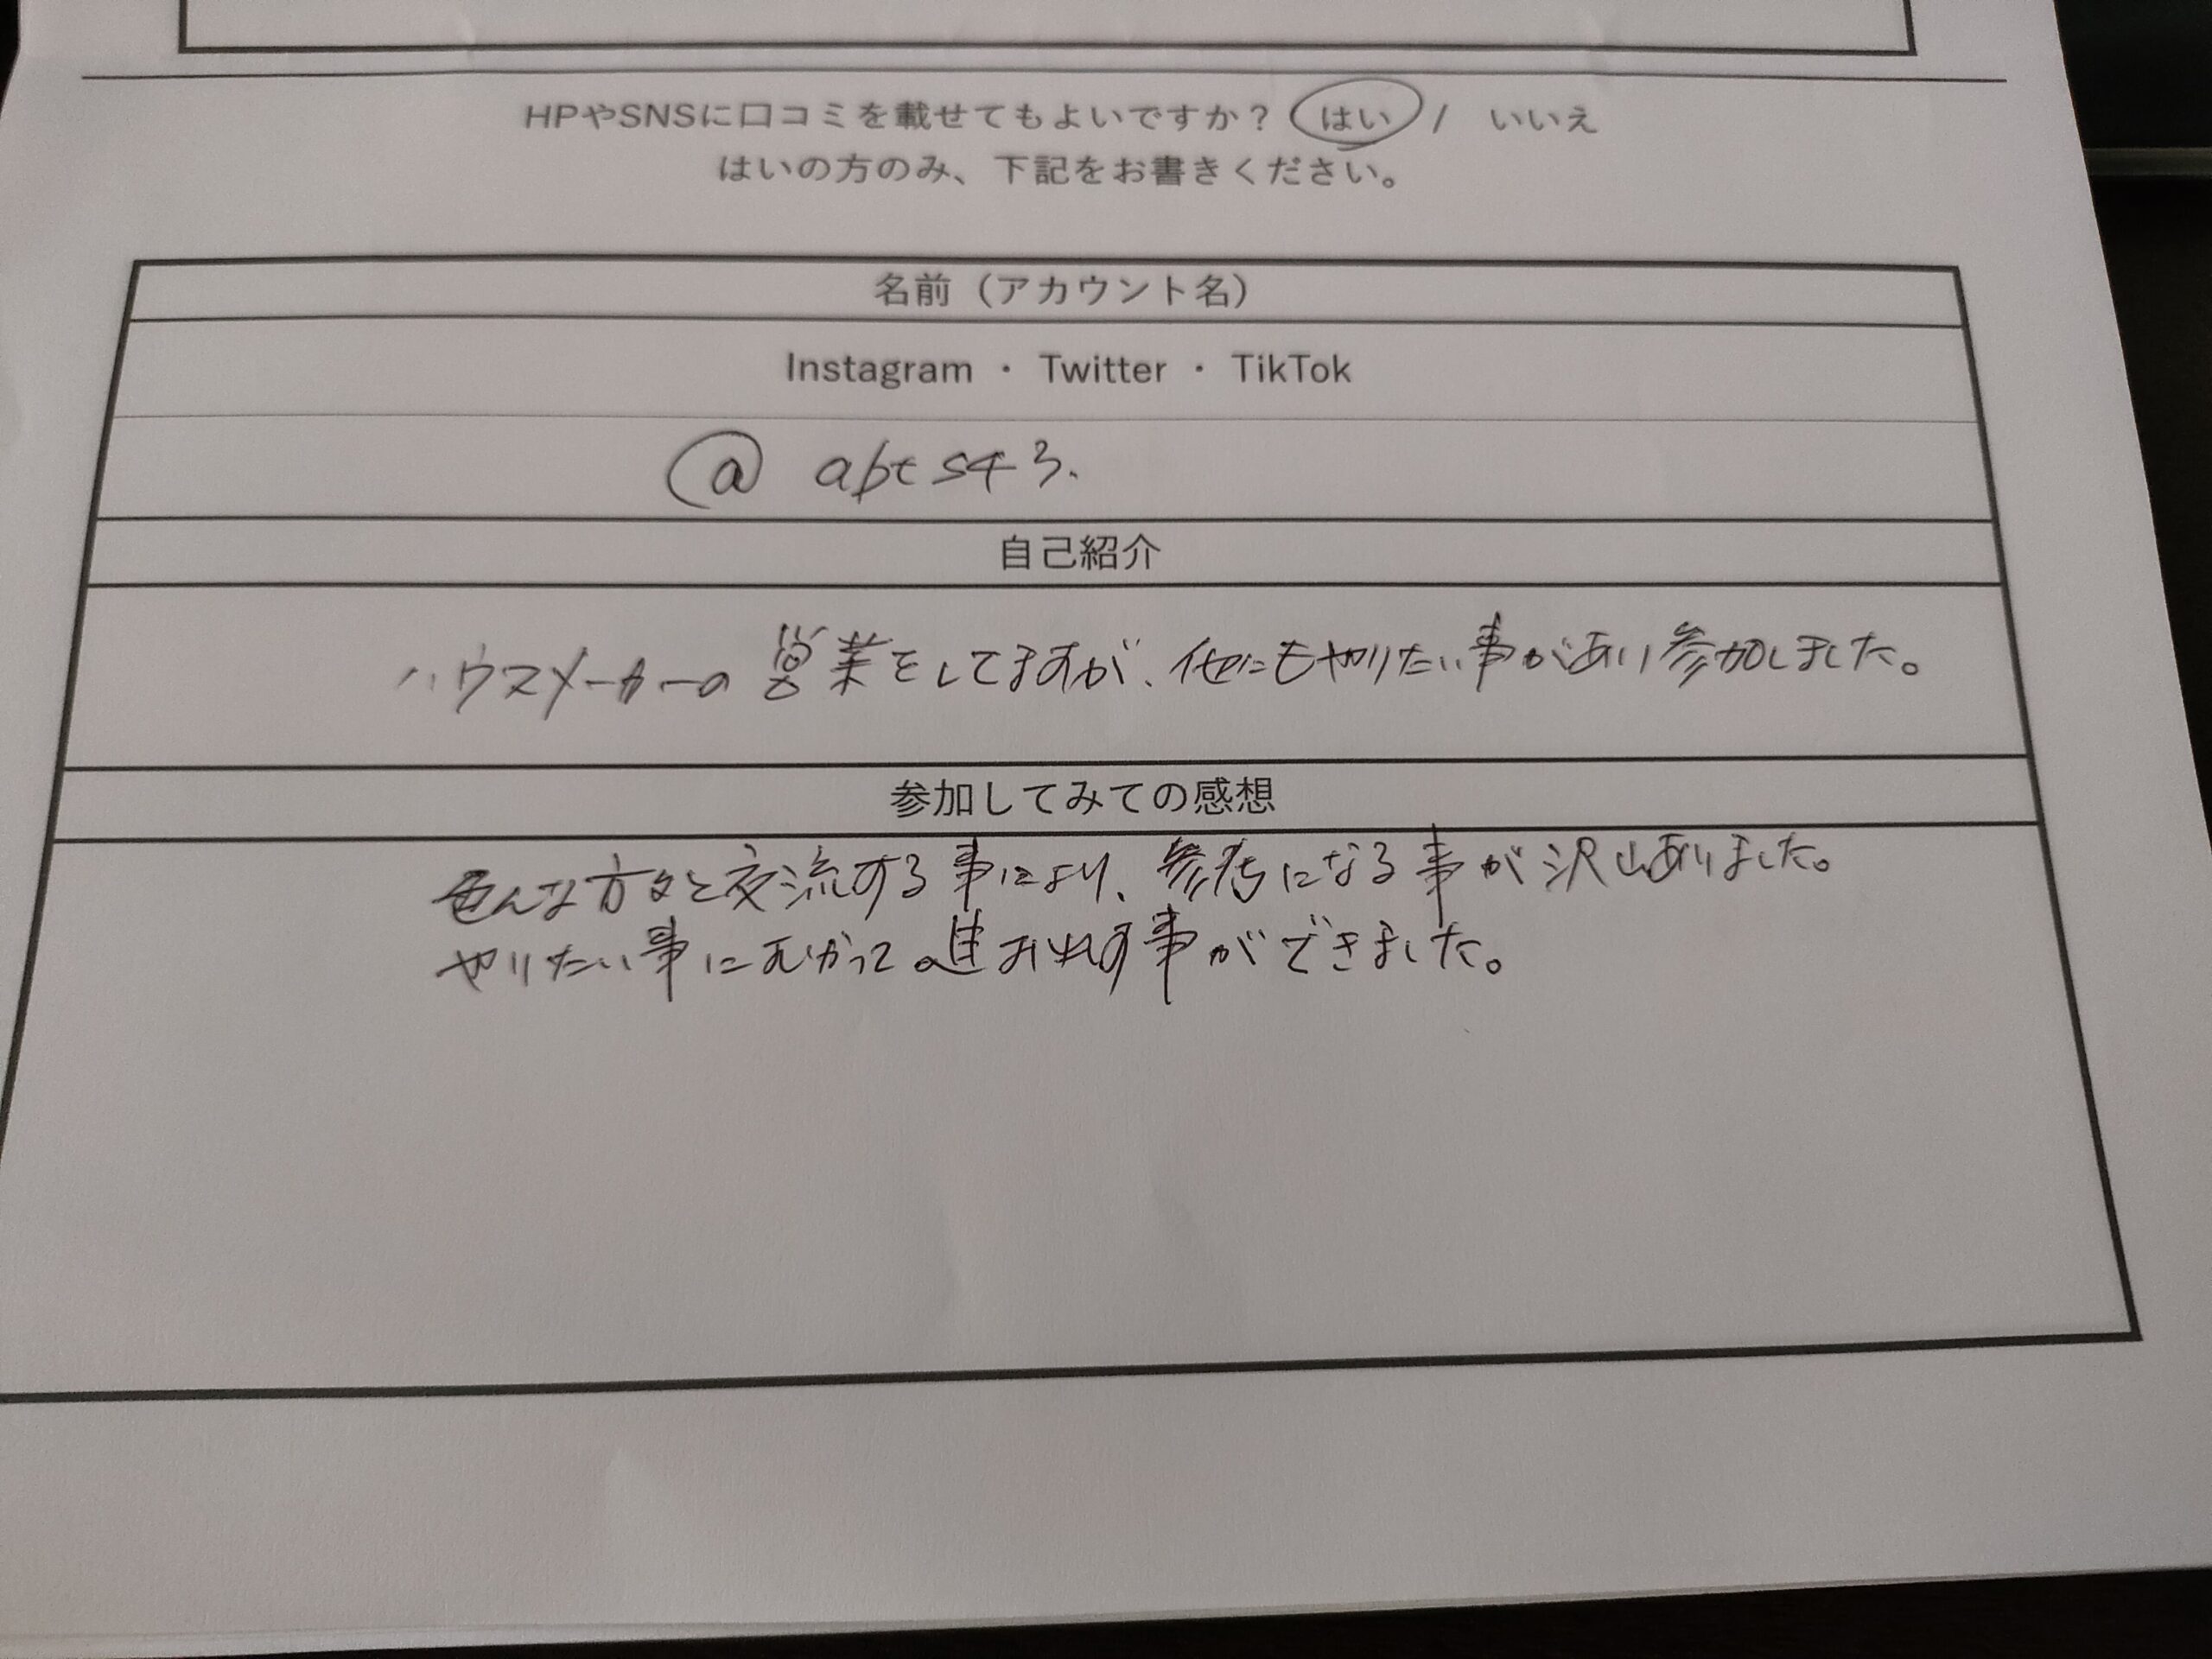 HPやSNSに口コミを載せてもよいですか？ はい / いいえ
はいの方のみ、下記をお書きください。
名前（アカウント名）
Instagram ・ Twitter ・ TikTok
@
自己紹介
ハウスメーカーの営業をしてますが、他にもやりたい事があり参加しました。
参加してみての感想
色んな方々と交流する事により、参考になる事が沢山ありました。
やりたい事にむかって 事ができました。